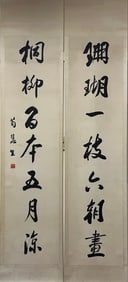 珊瑚一枝六朝畫
桐柳百本五月涼